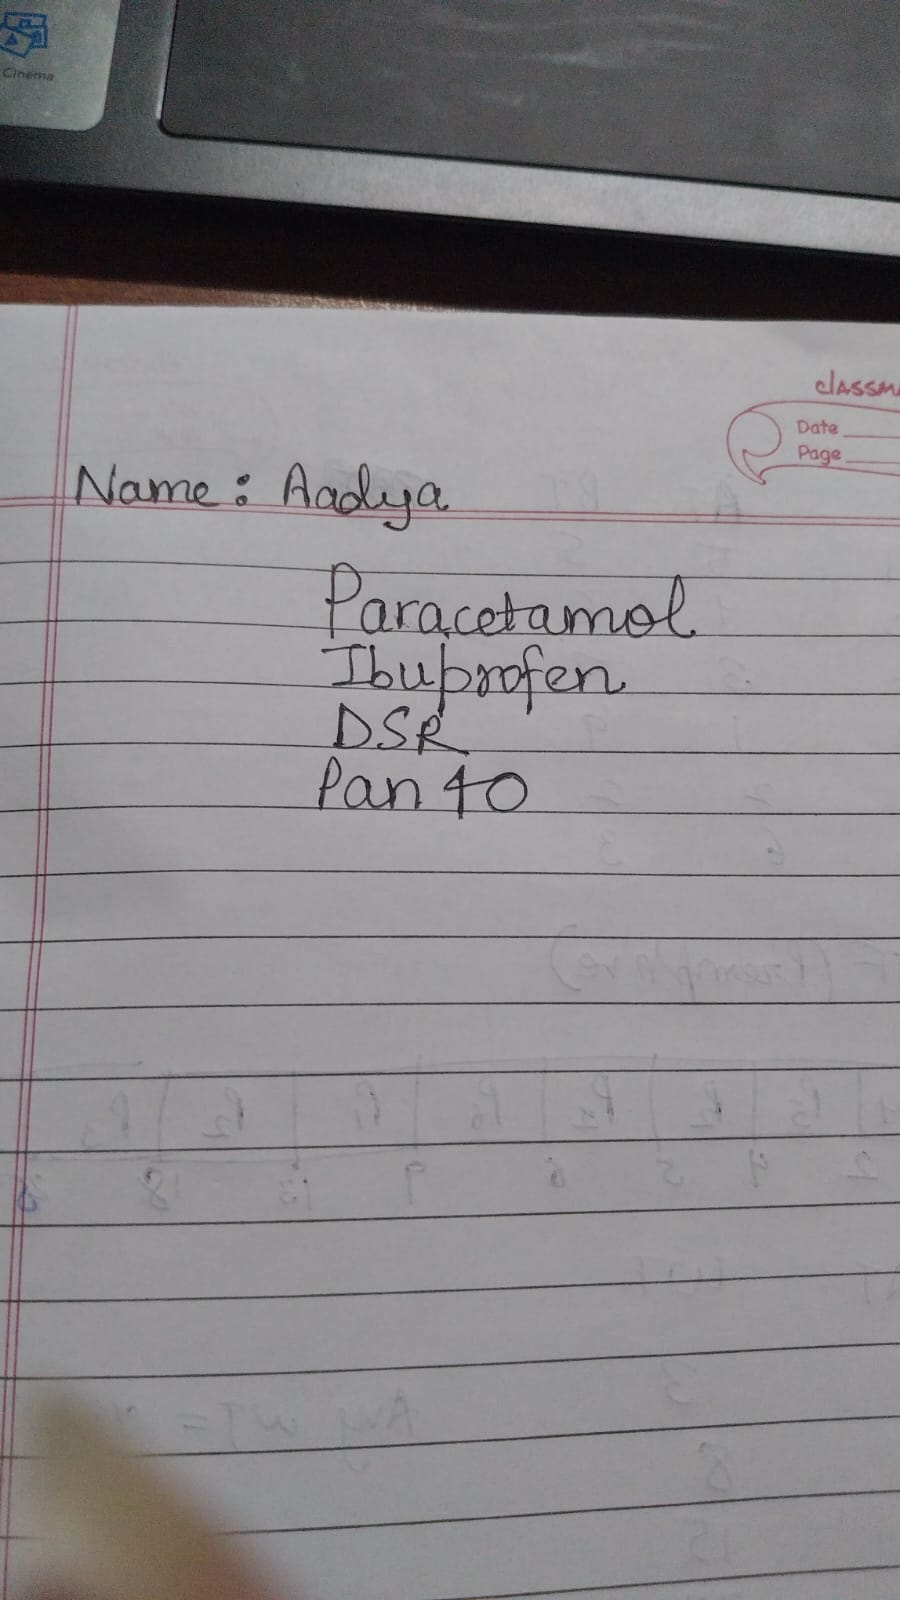 Cinema
classm
Date
Page
Name: Aadya
Paracetamol
Ibuprofen
DSR
Pan 40